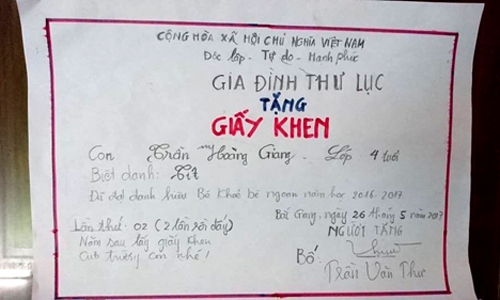 CỘNG HÒA XÃ HỘI CHỦ NGHĨA VIỆT NAM
Độc lập - Tự do - Hạnh phúc
GIA ĐÌNH THƯ LỤC
TẶNG
GIẤY KHEN
Con Trần Hoàng Giang. Lớp 4 tuổi
Biệt danh: Tít
Đã đạt danh hiệu Bé khoẻ bé ngoan năm học 2016-2017
Lần thứ: 02 (2 lần rồi đấy)
Năm sau lấy giấy khen
của trường con nhé!
Bắc Giang, ngày 26 tháng 5 năm 2017
NGƯỜI TẶNG
Bố:
Trần Văn Thư